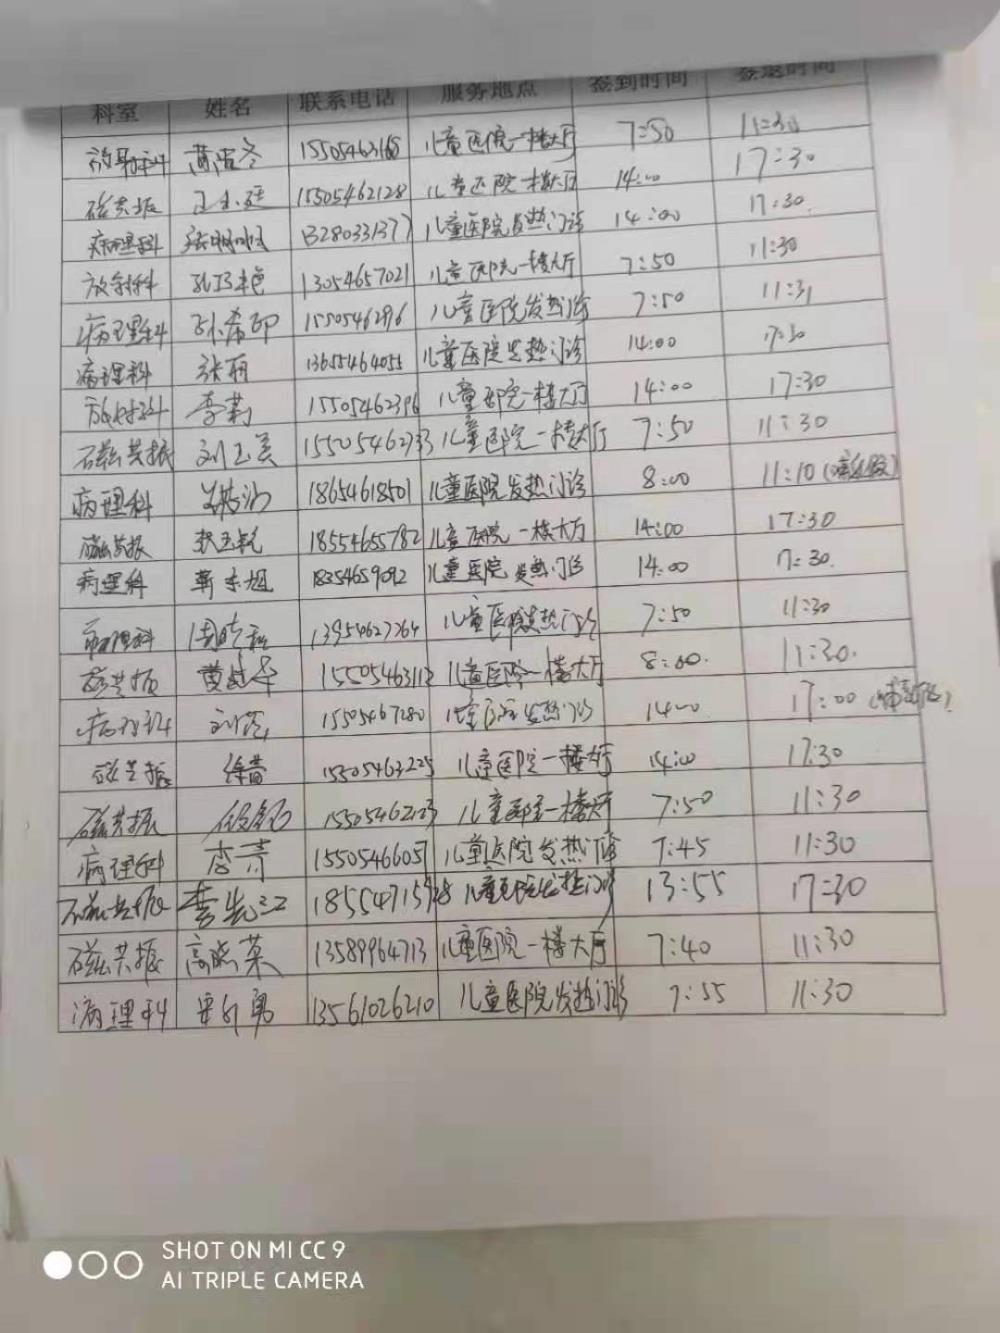 科室 姓名 联系电话 服务地点 签到时间 签退时间
放射科 15505463168 儿童医院一楼大厅 7:50 11:30
磁共振 15505462128 儿童医院一楼大厅 14:00 17:30
病理科 13280331377 儿童医院发热门诊 14:00 17:30
放射科 13054657021 儿童医院一楼大厅 7:50 11:30
病理科 孙希印 1550546296 儿童医院发热诊 7:50 11:31
病理科 张丽 13655464055 儿童医院发热门诊 14:00 17:30
放射科 李莉 15505462396 儿童医院一楼大厅 14:00 17:30
磁共振 刘玉美 儿童医院一楼大厅 7:50 11:30
病理科 18654618501 儿童医院发热门诊 8:00 11:10
磁共振 18554655782 儿童医院一楼大厅 14:00 17:30
病理科 18354659092 儿童医院发热门诊 14:00 17:30
病理科 13954627264 儿童医院发热门诊 7:50 11:30
磁共振 15505463112 儿童医院一楼大厅 8:00 11:30
病理科 15505467280 儿童医院发热门诊 14:00 17:00
磁共振 徐蕾 15505463225 儿童医院一楼大厅 14:00 17:30
磁共振 儿童医院一楼大厅 7:50 11:30
病理科 李青 儿童医院发热门诊 7:45 11:30
磁共振 李先江 儿童医院发热门诊 13:55 17:30
磁共振 高晓菜 13589964713 儿童医院一楼大厅 7:40 11:30
病理科 13561026210 儿童医院发热门诊 7:55 11:30
SHOT ON MI CC 9
AI TRIPLE CAMERA